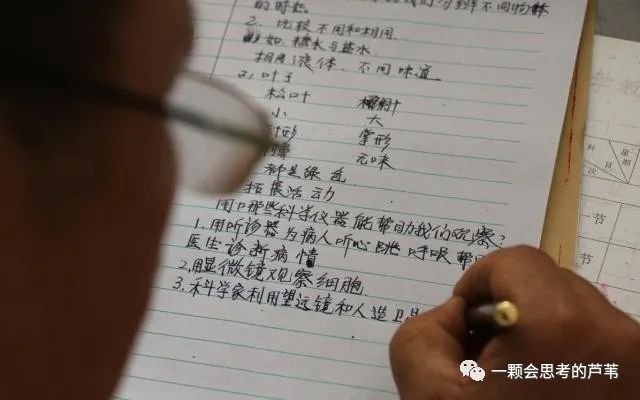 的特点
2. 比较不同和相同
如：糖水与盐水
相同：液体、不同味道
2)叶子
松叶
小 大
针形 掌形
无味
都是绿色
拓展活动
用哪些科学仪器能帮助我们观察？
1.用听诊器为病人听心跳 呼吸 帮
医生诊断病情
2.用显微镜观察细胞
3.科学家利用望远镜和人造卫
学 教
星期
科目
节次
一节
一颗会思考的芦苇